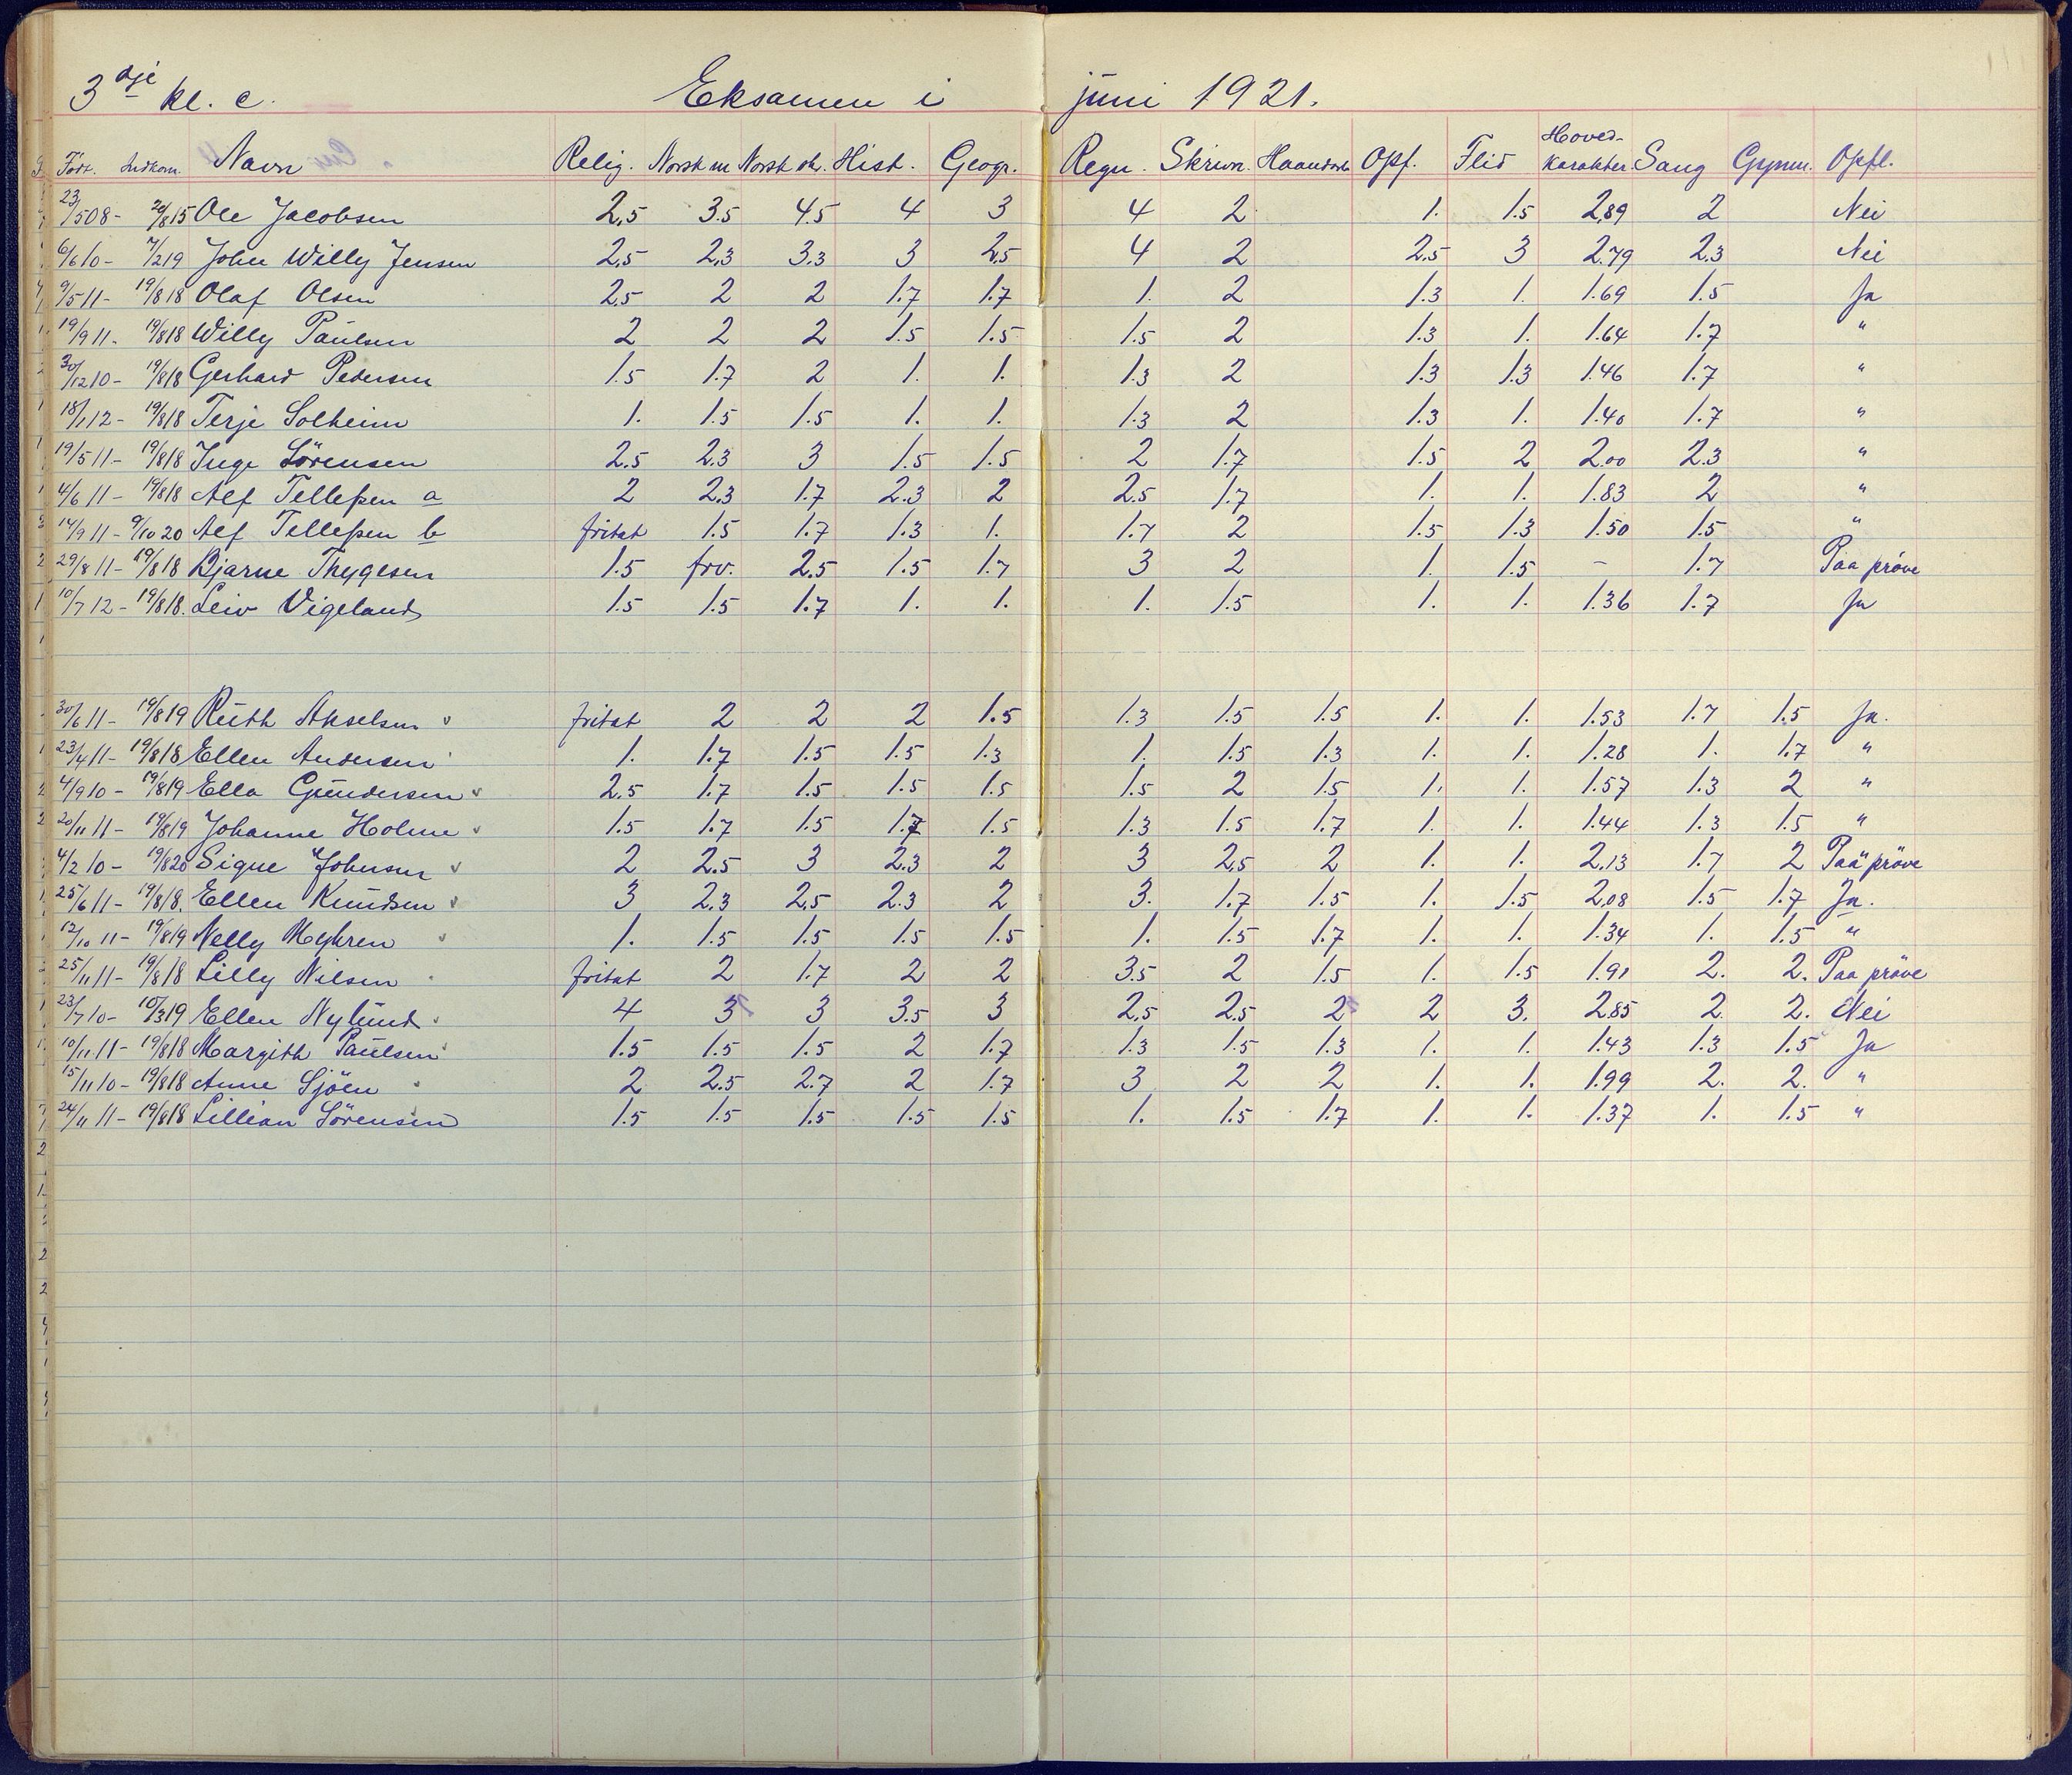 3dje kl. c. Eksamen i juni 1921.
Hoved-
Födt. Indkom. Navn Relig. Norsk m Norsk skr. Hist. Geogr. Regn. Skrivn. Haandarb. Opf. Flid karakter. Sang Gymn. Opfl.
23/5 08- 20/8 15 Ole Jacobsen 2,5 3.5 4.5 4 3 4 2 1. 1.5 2,89 2 Nei
6/6 10- 7/2 19 John Willy Jensen 2,5 2,3 3.3 3 2,5 4 2 2,5 3 2.79 2,3 Nei
9/5 11- 19/8 18 Olaf Olsen 2,5 2 2 1.7 1.7 1. 2 1.3 1. 1.69 1.5 Ja
19/9 11- 19/8 18 Willy Paulsen 2 2 2 1.5 1.5 1.5 2 1.3 1. 1.64 1.7 "
30/12 10- 19/8 18 Gerhard Pedersen 1.5 1.7 2 1. 1. 1.3 2 1.3 1.3 1.46 1.7 "
18/1 12- 19/8 18 Terje Solheim 1. 1.5 1.5 1. 1. 1.3 2 1.3 1. 1.40 1.7 "
19/5 11- 19/8 18 Inge Sörensen 2.5 2.3 3 1.5 1.5 2 1.7 1.5 2 2.00 2.3 "
4/6 11- 19/8 18 Alf Tellefsen a 2 2,3 1.7 2.3 2 2.5 1.7 1. 1. 1.83 2 "
14/9 11- 9/10 20 Alf Tellefsen b fritat 1.5 1.7 1.3 1. 1.7 2 1.5 1.3 1.50 1.5 "
29/8 11- 19/8 18 Bjarne Thygesen 1.5 frv. 2.5 1.5 1.7 3 2 1. 1.5 - 1.7 Paa pröve
10/7 12- 19/8 18. Leiv Vigeland 1.5 1.5 1.7 1. 1. 1. 1.5 1. 1. 1.36 1.7 Ja
30/6 11- 19/8 19 Ruth Akselsen fritat 2 2 2 1.5 1.3 1.5 1.5 1. 1. 1.53 1.7 1.5 Ja.
23/4 11- 19/8 18 Ellen Andersen 1. 1.7 1.5 1.5 1.3 1. 1.5 1.3 1. 1. 1.28 1. 1.7 "
4/9 10- 19/8 19 Ella Gundersen 2.5 1.7 1.5 1.5 1.5 1.5 2 1.5 1. 1. 1.57 1.3 2 "
20/11 11- 19/8 19 Johanne Holme 1.5 1.7 1.5 1.7 1.5 1.3 1.5 1.7 1. 1. 1.44 1.3 1.5 "
4/2 10- 19/8 20 Signe Johnsen 2 2.5 3 2.3 2 3 2,5 2 1. 1. 2,13 1.7 2 Paa pröve
25/6 11- 19/8 18. Ellen Knudsen 3 2.3 2,5 2.3 2 3. 1.7 1.5 1. 1.5 2,08 1.5 1.7 Ja.
12/10 11- 19/8 19 Nelly Myhren 1. 1.5 1.5 1.5 1.5 1. 1.5 1.7 1. 1. 1.34 1. 1.5 "
25/11 11- 19/8 18 Lilly Nilsen fritat 2 1.7 2 2 3.5 2 1.5 1. 1.5 1.91 2. 2. Paa pröve
23/7 10- 10/3 19 Ellen Nylund 4 3 3 3.5 3 2,5 2.5 2 2 3. 2,85 2. 2. Nei
10/11 11- 19/8 18 Margith Paulsen 1.5 1.5 1.5 2 1.7 1.3 1.5 1.3 1. 1. 1.43 1.3 1.5 Ja
15/11 10- 19/8 18 Anne Sjöen 2 2.5 2.7 2 1.7 3 2 2 1. 1. 1.99 2. 2. "
24/11 11- 19/8 18 Lillian Sörensen 1.5 1.5 1.5 1.5 1.5 1. 1.5 1.7 1. 1. 1.37 1. 1.5 "